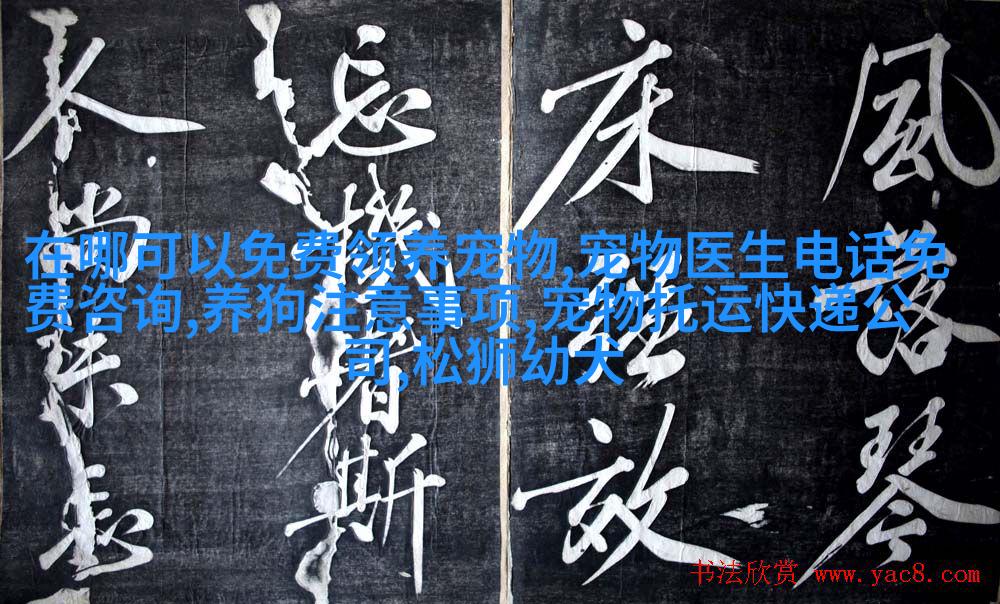 風落琴
床
忘機者斯
在哪可以免费领养宠物,宠物医生电话免
费咨询,养狗注意事项,宠物托运快递公
司,松狮幼犬
书法欣赏 www.yac8.com